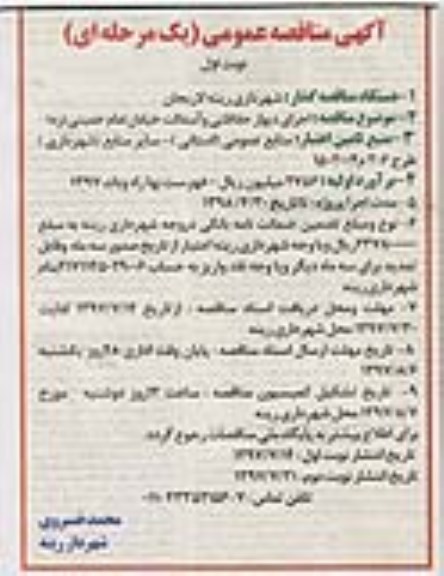 آگهی مناقصه عمومی (یک مرحله ای)
نوبت اول
۱- دستگاه مناقصه گذار: شهرداری رینه لاریجان
۲- موضوع مناقصه: اجرای دیوار حفاظتی و آسفالت خیابان امام خمینی (ره)
۳- منبع تامین اعتبار: منابع عمومی (استانی) - سایر منابع (شهرداری)
طرح
۴- برآورد اولیه: میلیون ریال - فهرست بها راه وباند ۱۳۹۷
۵- مدت اجرا پروژه: تا تاریخ ۱۳۹۸/۴/۳۰
۶- نوع ومبلغ تضمین ضمانت نامه بانکی دروجه شهرداری رینه به مبلغ
ریال ویا وجه شهرداری رینه اعتبار از تاریخ صدور سه ماه وقابل
تمدید برای سه ماه دیگر ویا وجه نقد واریز به حساب بنام
شهرداری رینه
۷- مهلت ومحل دریافت اسناد مناقصه: از تاریخ ۱۳۹۷/۷/۱۴ لغایت
۱۳۹۷/۷/۳۰ محل شهرداری رینه
۸- تاریخ مهلت ارسال اسناد مناقصه: پایان وقت اداری روز یکشنبه
۹- تاریخ تشکیل کمیسیون مناقصه: ساعت روز دوشنبه مورخ
محل شهرداری رینه
برای اطلاع بیشتر به پایگاه ملی مناقصات رجوع گردد.
تاریخ انتشار نوبت اول: ۱۳۹۷/۷/۱۴
تاریخ انتشار نوبت دوم: ۱۳۹۷/۷/۲۱
تلفن تماس:
محمد خسروی
شهردار رینه